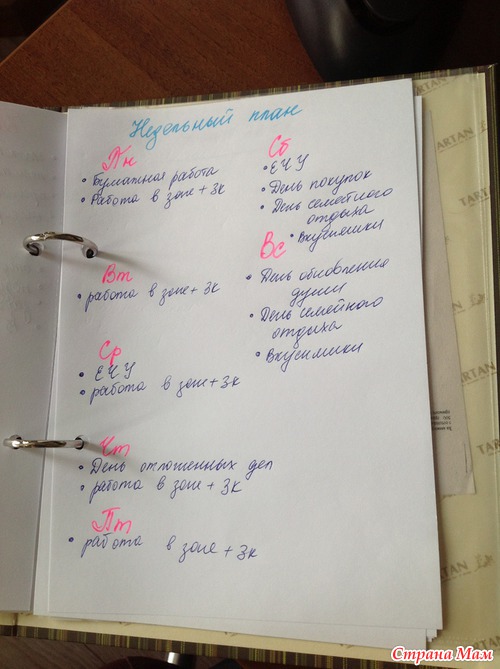 Недельный план
Пн
• Бумажная работа
• Работа в зоне + 3к
Вт
• работа в зоне + 3к
Ср
• ЕЧУ
• работа в зоне + 3к
Чт
• День отложенных дел
• работа в зоне + 3к
Пт
• работа в зоне + 3к
Сб
• ЕЧУ
• День покупок
• День семейного
отдыха
• Вкусняшки
Вс
• День обновления
души
• День семейного
отдыха
• Вкусняшки
TARTAN
TARTAN
TARTAN
Страна Мам